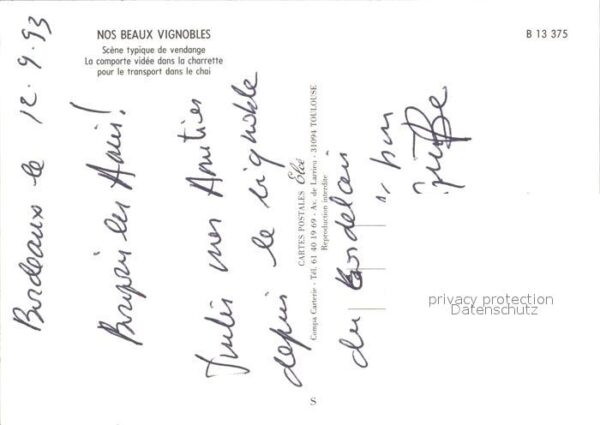 NOS BEAUX VIGNOBLES
Scène typique de vendange
La comporte vidée dans la charrette
pour le transport dans le chai
B 13 375
Bordeaux le 12.9.93
les Amis!
mes Amitiés
depuis le vignoble
du Bordelais
CARTES POSTALES Eloé
Compa Carterie - Tél. 61 40 19 69 - Av. de Larrieu - 31094 TOULOUSE
Reproduction interdite
S
privacy protection
Datenschutz